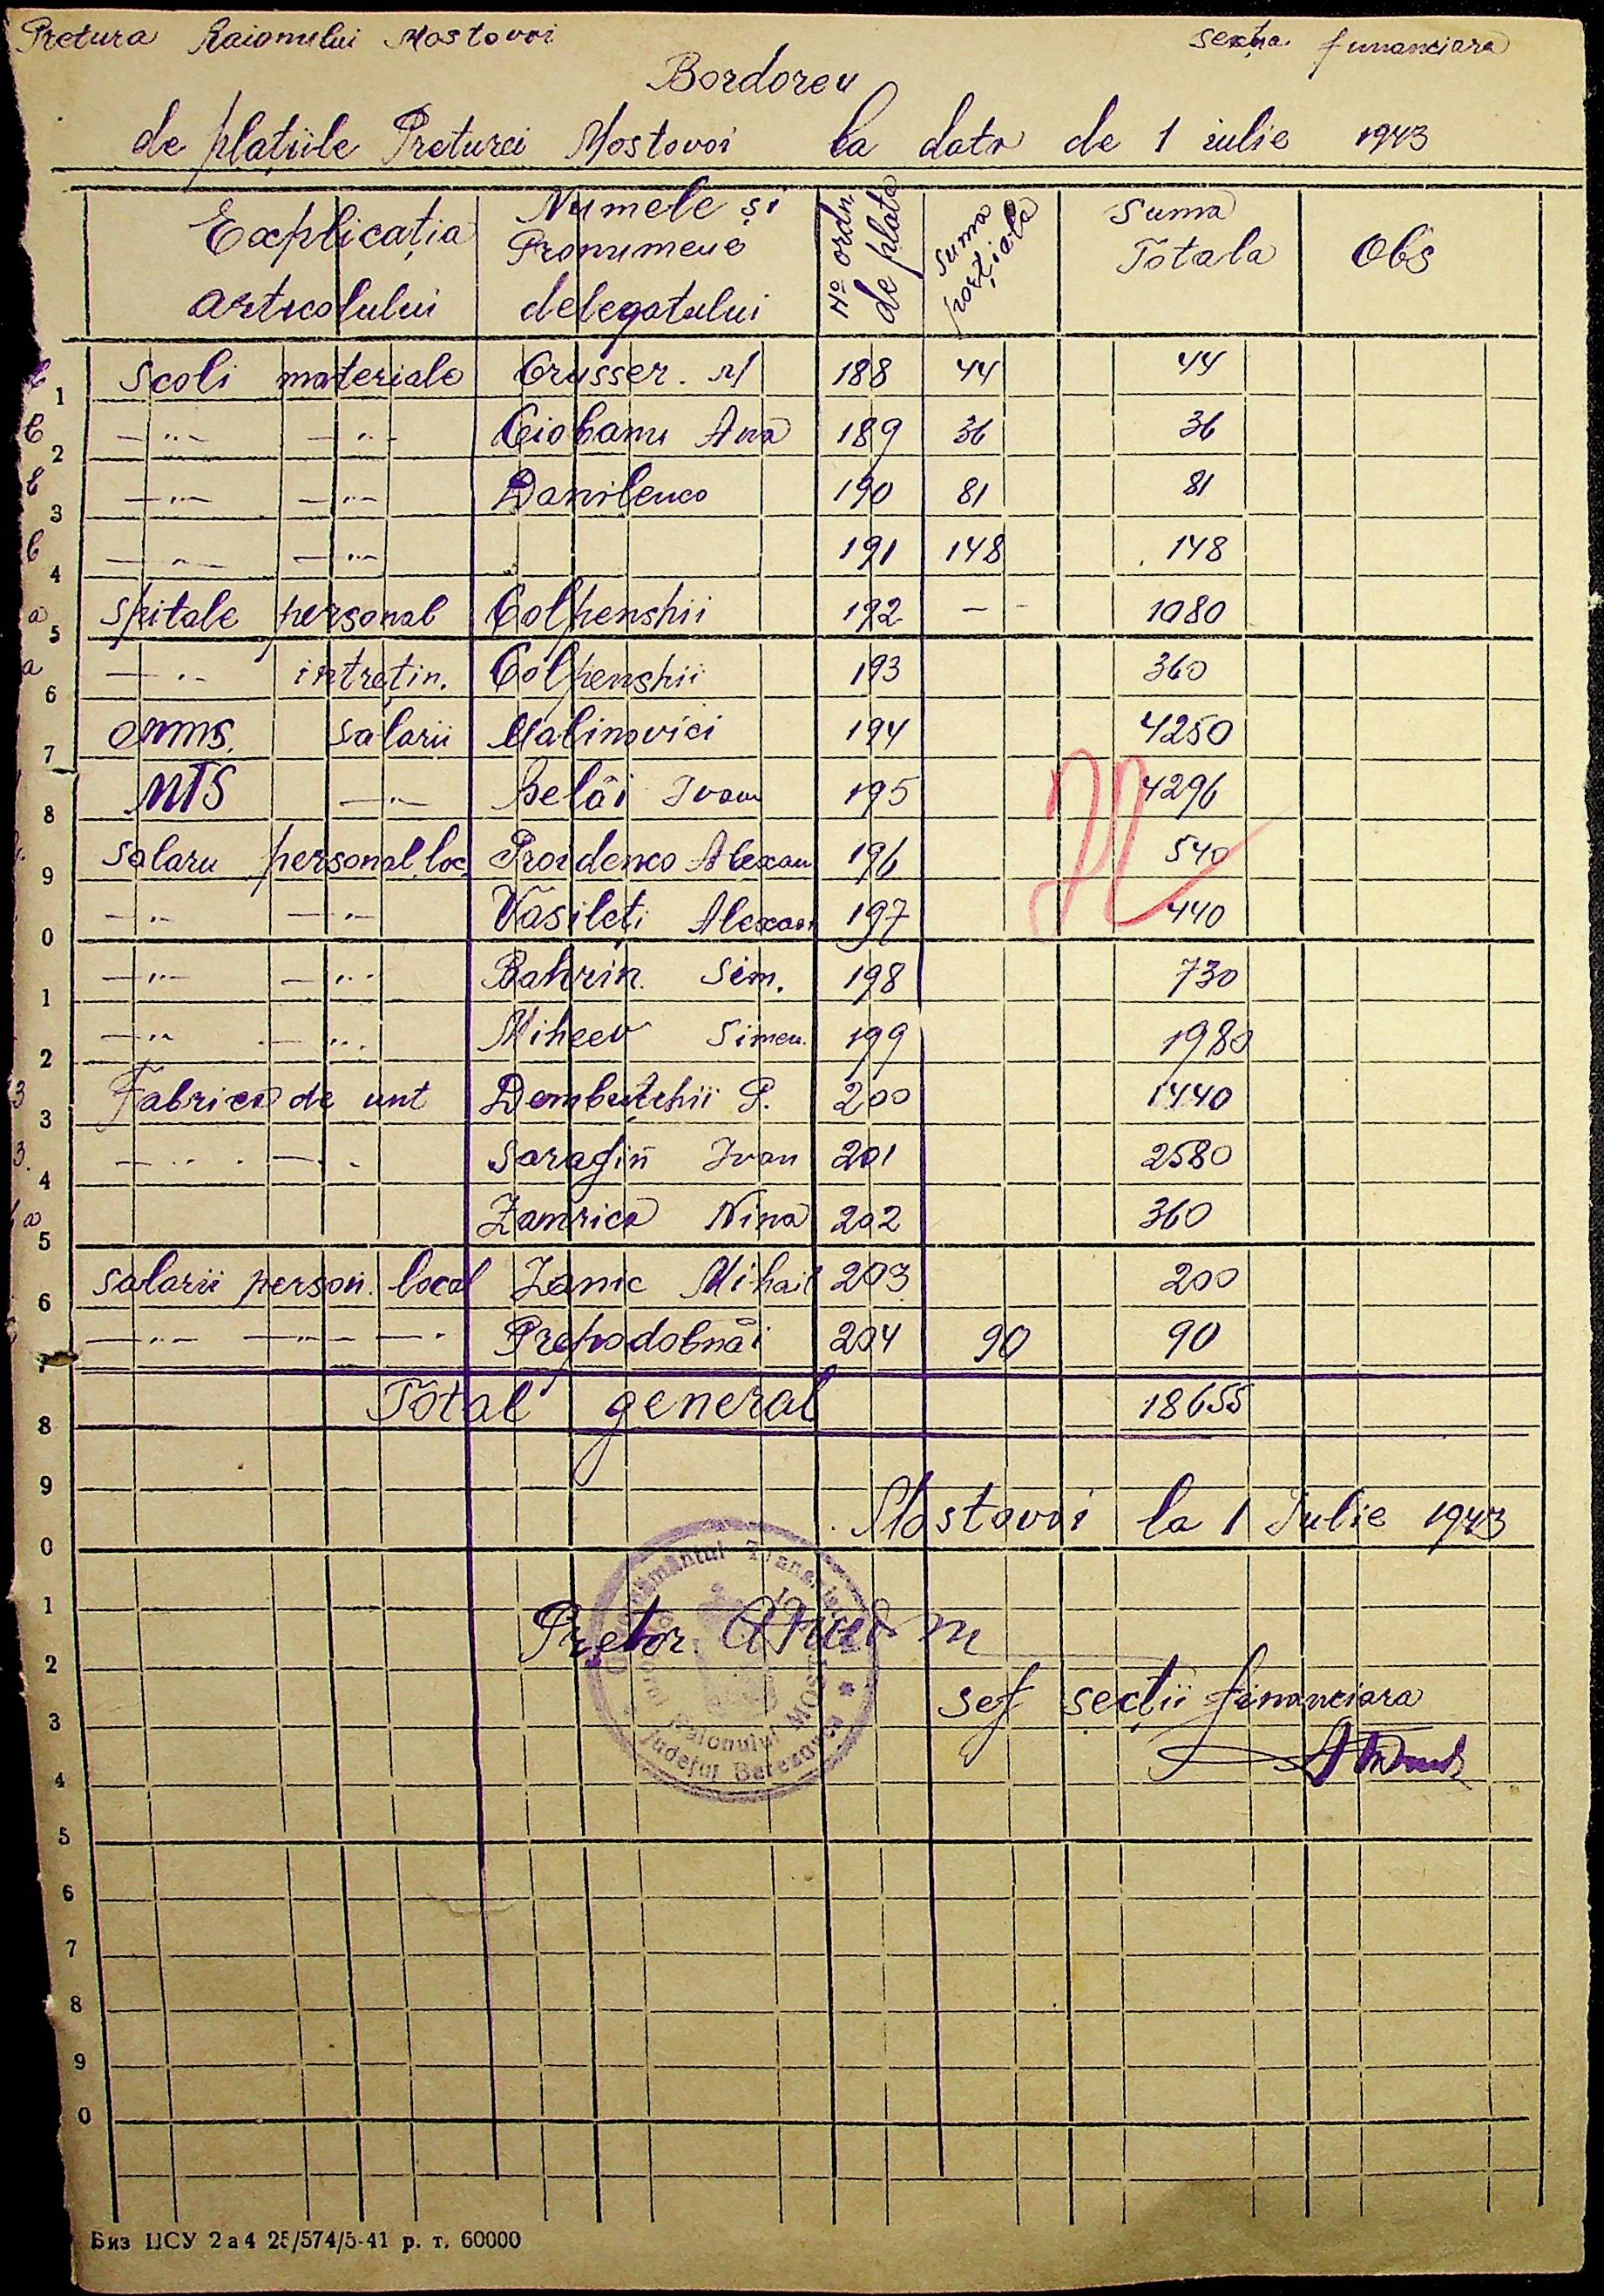 Pretura Raionului Mostovoi secția financiara
Bordoreu
de platiile Preturei Mostovoi la data de 1 iulie 1943
Explicația articolului Numele și Pronumele delegatului No ordn. de plata suma porțiala Suma Totala Obs
b 1 Scoli materiale Crusser. M 188 44 44
b 2 —"— —"— Ciobanu Ana 189 36 36
b 3 —"— —"— Danilenco 190 81 81
b 4 —"— —"— 191 148 148
a 5 Spitale personal Colpenshii 192 — - 1080
a 6 —"— intrețin. Colpenshii 193 360
7 salarii Malinovici 194 4250
8 MTS —"— Belâi Ivan 195 4296
9 Salaru personal loc Proidenco Alexan 196 540
0 —"— —"— Vasileti Alexan 197 440
1 —"— —"— Bahrin. Sim. 198 730
2 —"— —"— Miheev Simeu. 199 1980
3 3 Fabrica de unt Dembițchii P. 200 1440
3. 4 —"— —"— Saragin Ivan 201 2580
a 5 Zamrica Nina 202 360
6 salarii person. local Zanic Mihail 203 200
7 —"— —"— —"— Prepodobnâi 204 90 90
8 Total general 18655
9
Mostovoi la 1 Iulie 1943
0
1
Pretor
2
sef secții financiara
3
Raionului
Județul Berezovca
4
5
6
7
8
9
0
Биз ЦСУ 2а4 25/574/5-41 р. т. 60000